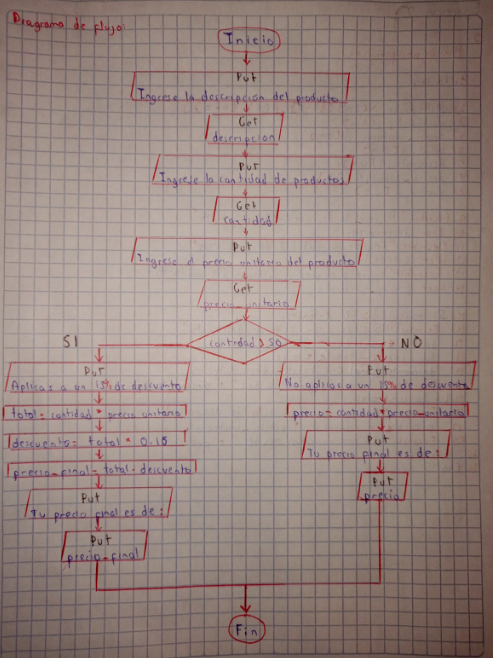 Diagrama de flujo:
Inicio
Put
Ingrese la descripcion del producto
Get
descripcion
Put
Ingrese la cantidad de productos
Get
cantidad
Put
Ingrese el precio unitario del producto
Get
precio_unitario
cantidad > 50
SI
NO
Put
Aplicas a un 15% de descuento
total = cantidad * precio unitario
descuento = total * 0.15
precio_final = total - descuento
Put
Tu precio final es de :
Put
precio_final
Put
No aplicas a un 15% de descuento
precio = cantidad * precio_unitario
Put
Tu precio final es de :
Put
precio
Fin